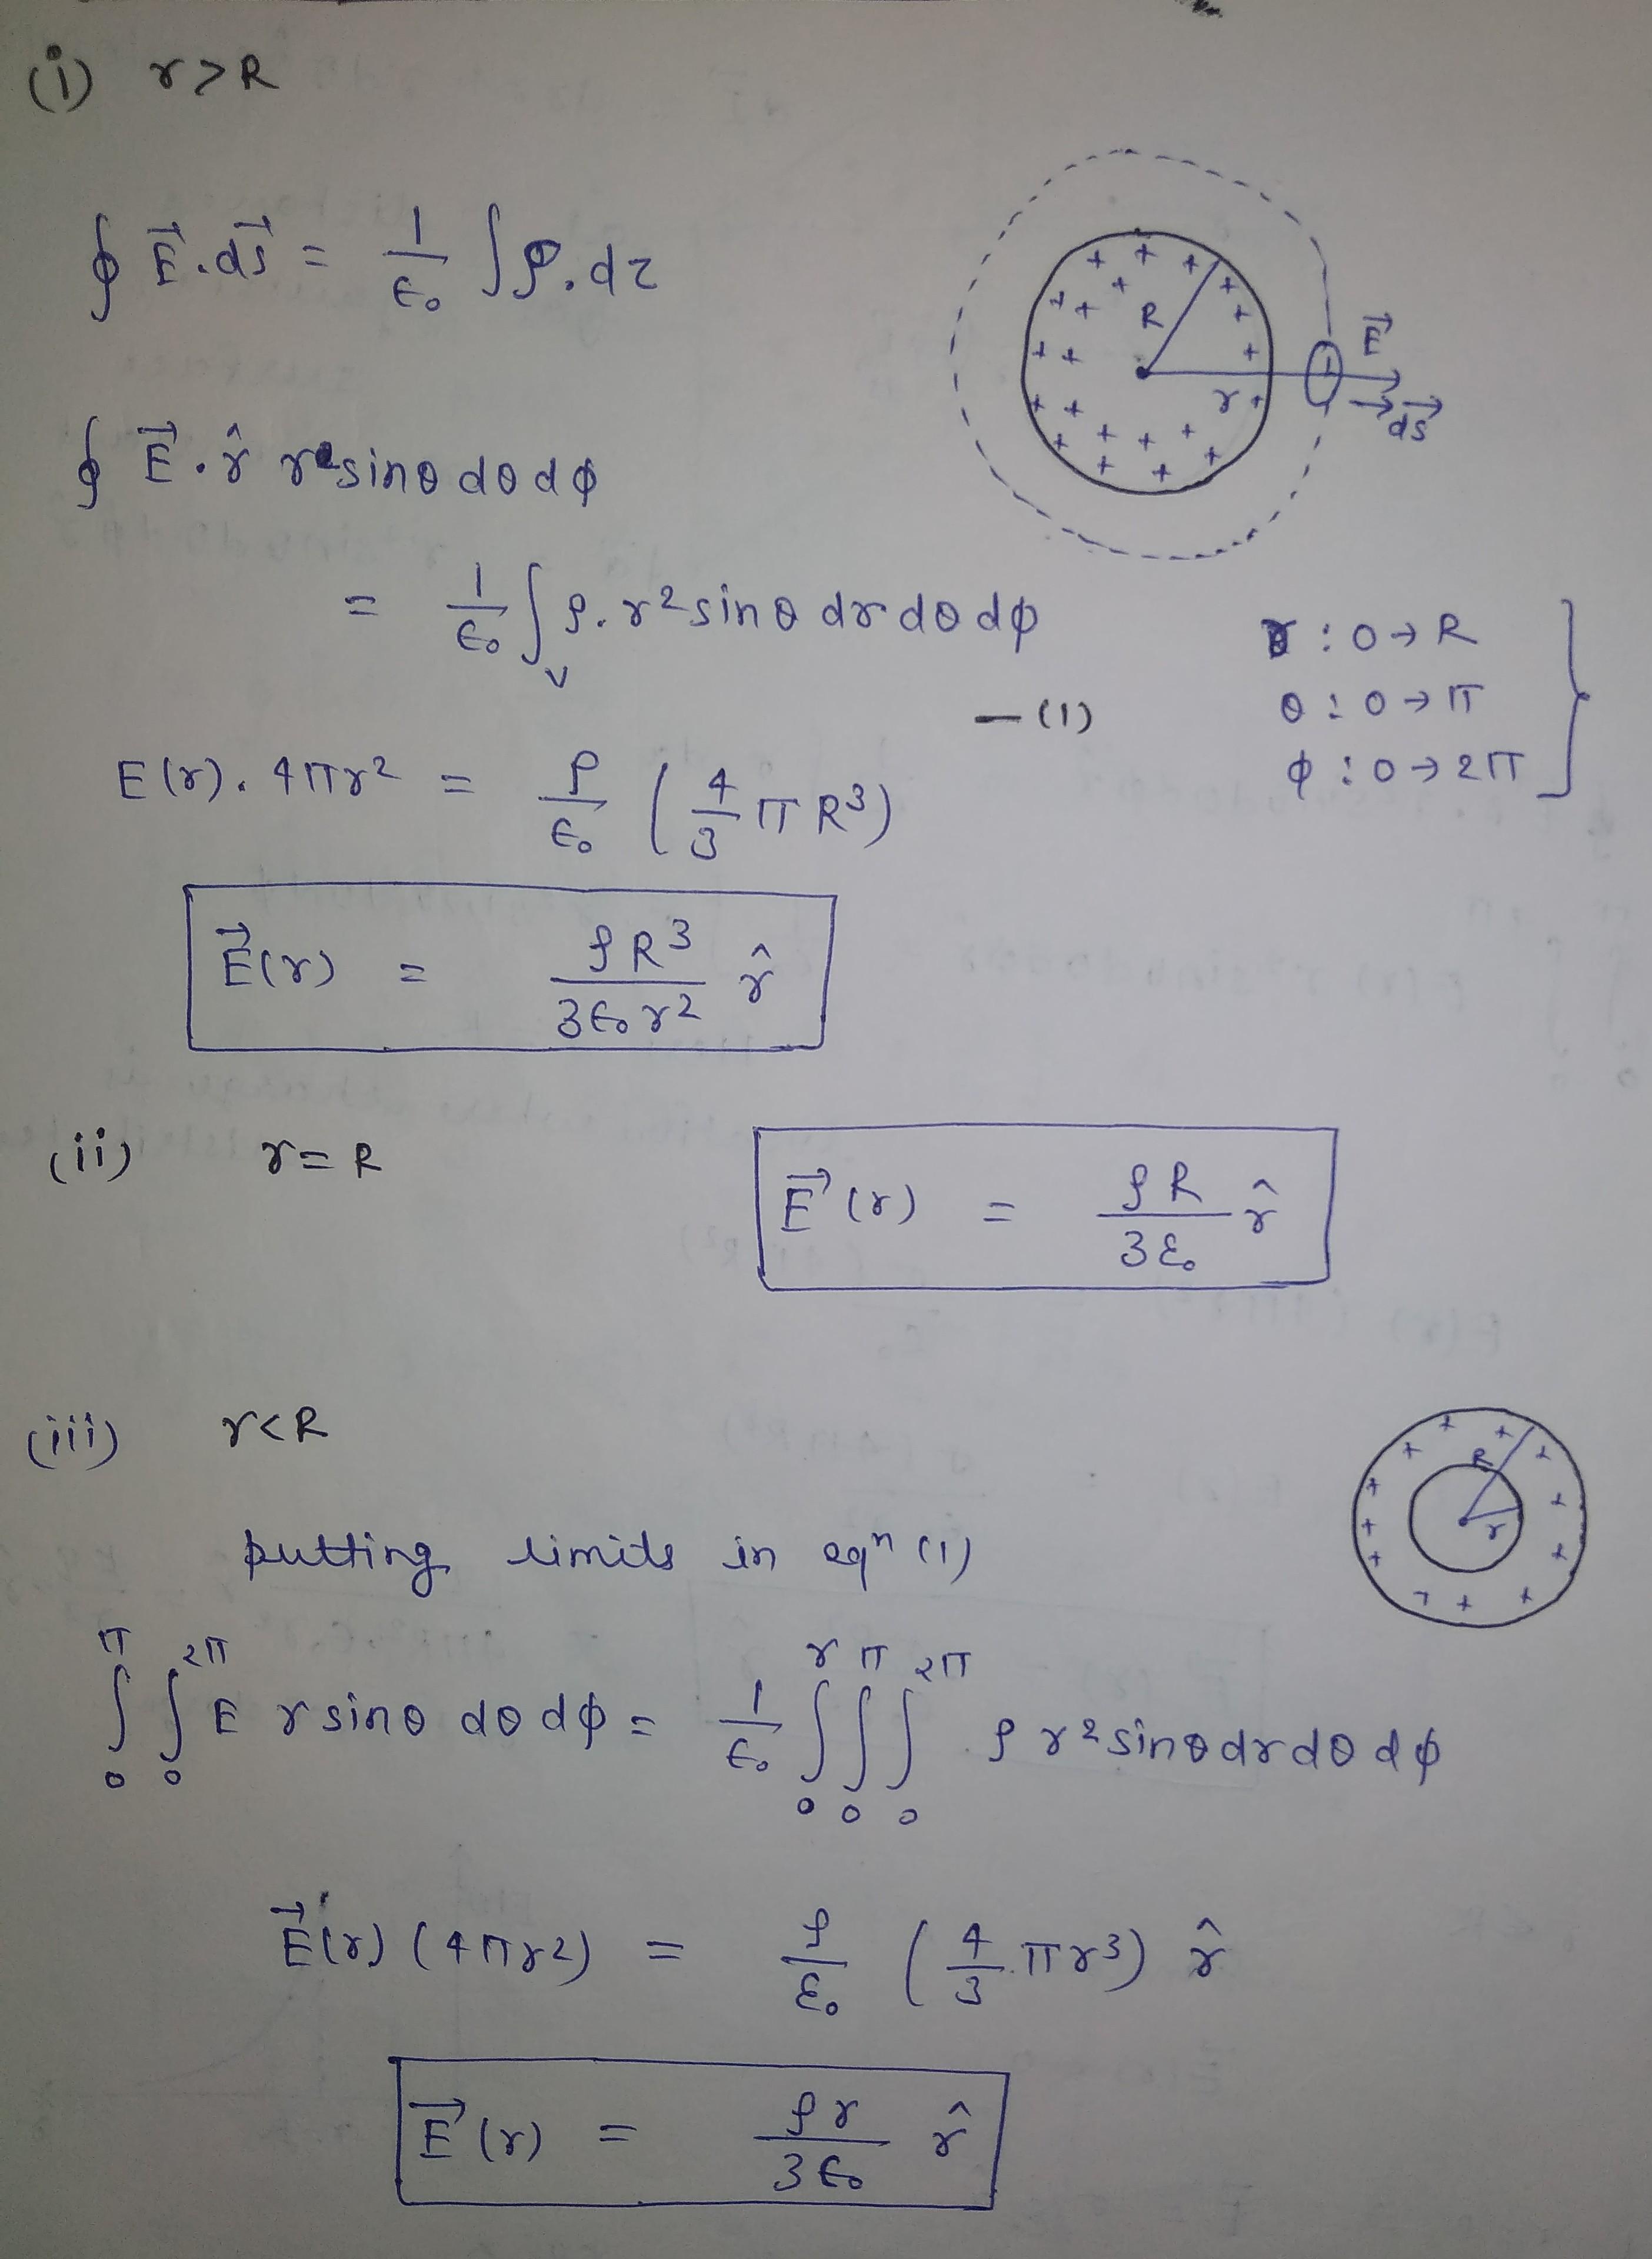 (i) r>R
∮ E⃗.ds⃗ = 1/ϵ₀ ∫ρ.dτ
R
r
E⃗
ds⃗
∮ E⃗.r̂ r²sinθdθdϕ
= 1/ϵ₀ ∫ᵥ ρ.r²sinθ dr dθ dϕ
—(1)
r : 0→R
θ : 0→π
ϕ : 0→2π
E(r). 4πr² = ρ/ϵ₀ (4/3 πR³)
E⃗(r) = ρR³/3ϵ₀r² r̂
(ii) r=R
E⃗(r) = ρR/3ε₀ r̂
(iii) r<R
R
r
putting limits in eqⁿ (1)
∫₀^π ∫₀^2π E r sinθ dθ dϕ = 1/ϵ₀ ∫₀^r ∫₀^π ∫₀^2π ρ r²sinθdrdθdϕ
E⃗(r) (4πr²) = ρ/ε₀ (4/3 πr³) r̂
E⃗(r) = ρr/3ϵ₀ r̂